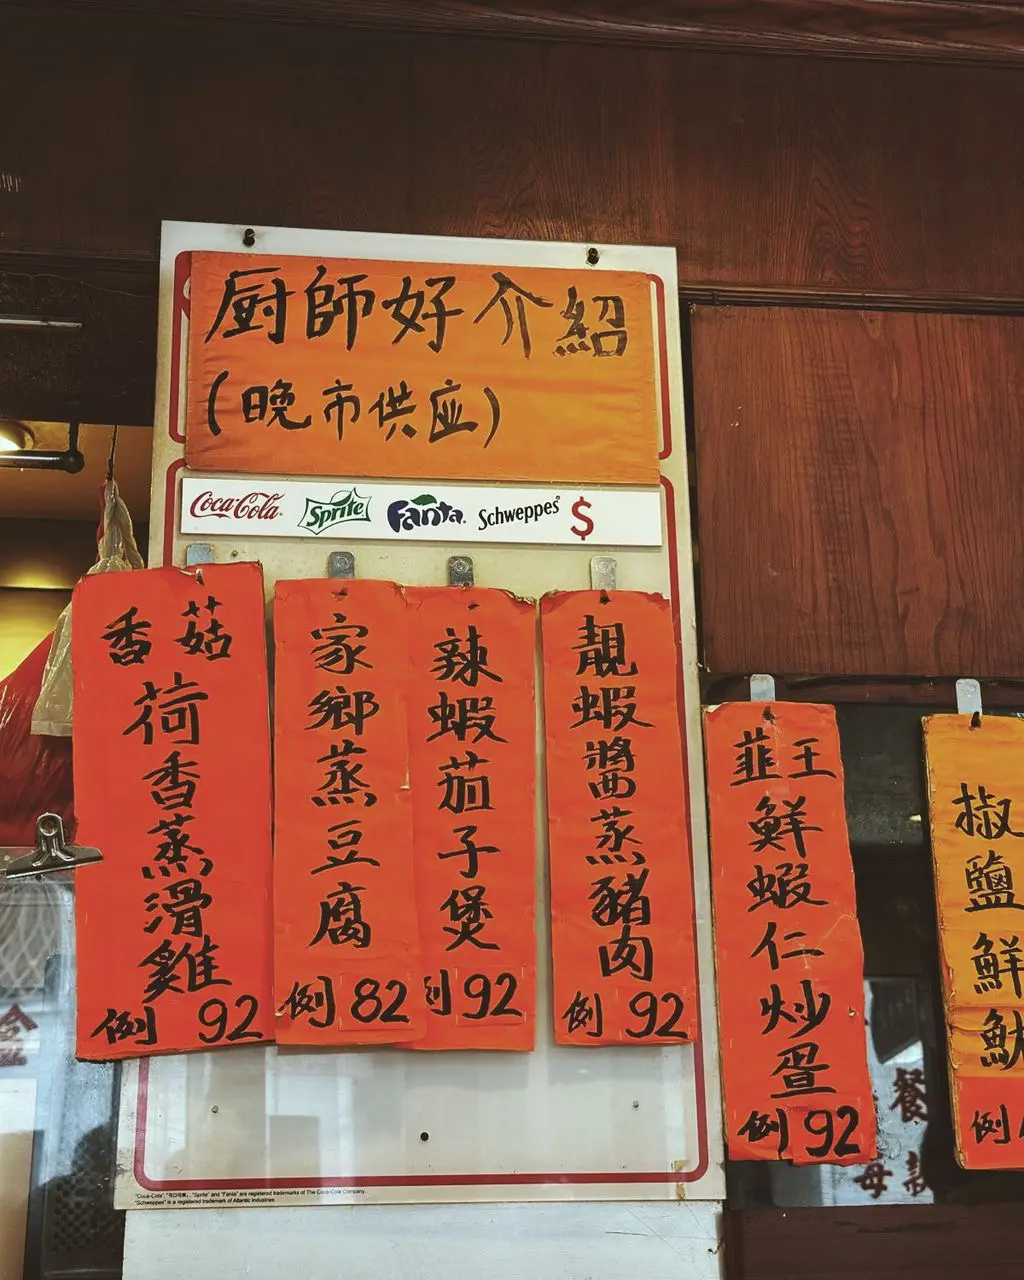 厨師好介紹
(晚市供应)
Coca-Cola Sprite Fanta Schweppes $
香菇
荷香蒸滑雞
例 92
家鄉蒸豆腐
例 82
辣蝦茄子煲
例 92
靚蝦醬蒸豬肉
例 92
韮王
鮮蝦仁炒蛋
例 92
椒鹽鮮魷
例
"Coca-Cola", "可口可樂", "Sprite" and "Fanta" are registered trademarks of The Coca-Cola Company.
"Schweppes" is a registered trademark of Atlantic Industries.
餐